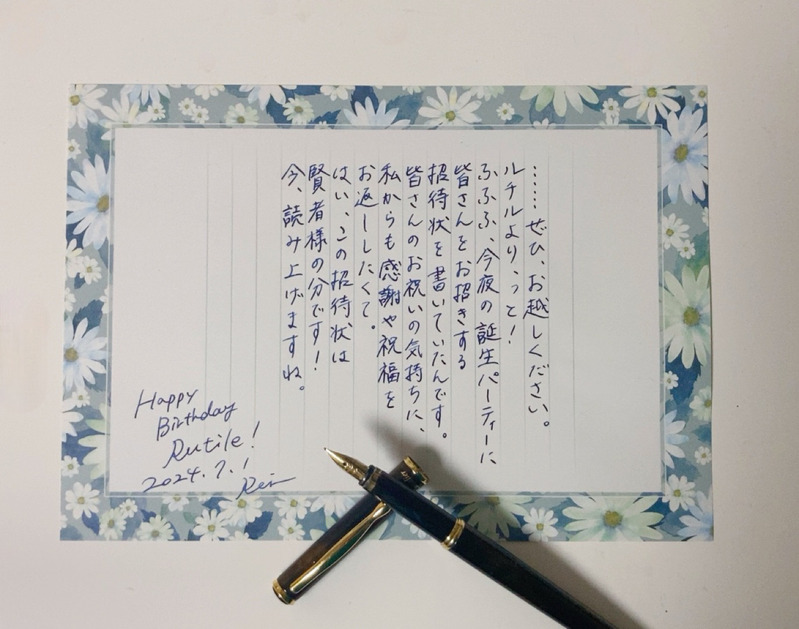 ……ぜひ、お越しください。
ルチルより、っと！
ふふふ、今夜の誕生パーティーに
皆さんをお招きする
招待状を書いていたんです。
皆さんのお祝いの気持ちに、
私からも感謝や祝福を
お返ししたくて。
はい、この招待状は
賢者様の分です！
今、読み上げますね。
Happy
Birthday
Rutile!
2024.7.1